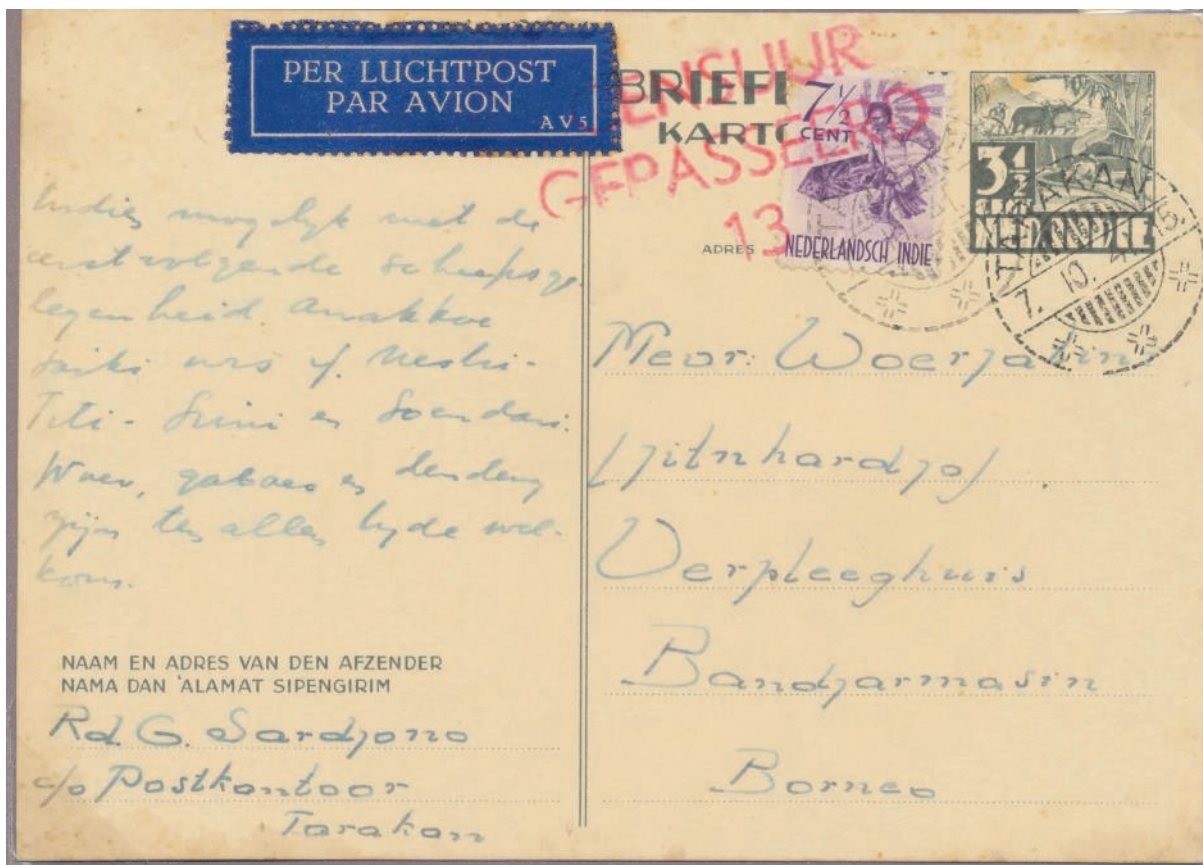 PER LUCHTPOST
PAR AVION
AV5
BRIEF
KARTO
CENSUUR
GEPASSEERD
13
7½
CENT
NEDERLANDSCH INDIE
3½
CENT
NED. INDIE
TARAKAN
7.10.4
ADRES
Indien mogelijk met de
eerstvolgende scheepsge-
legenheid
Titi - en Soendari.
en dendeng
zijn ten allen tyde wel-
kom.
NAAM EN ADRES VAN DEN AFZENDER
NAMA DAN 'ALAMAT SIPENGIRIM
Rd. G. Sardjono
c/o Postkantoor
Tarakan
Mevr. Woerjatin
Verpleeghuis
Bandjarmasin
Borneo